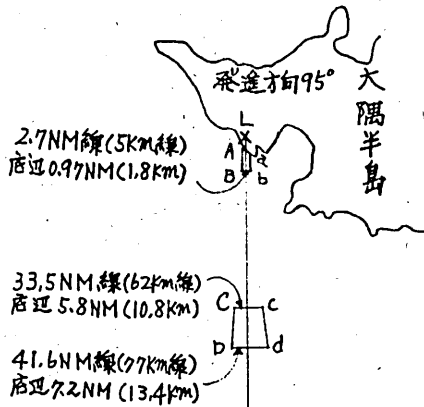 飛しょう方向95°
大隅半島
L
A a
B b
2.7NM線(5Km線)
底辺0.97NM(1.8Km)
33.5NM線(62Km線)
底辺5.8NM(10.8Km)
C c
D d
41.6NM線(77Km線)
底辺7.2NM(13.4Km)